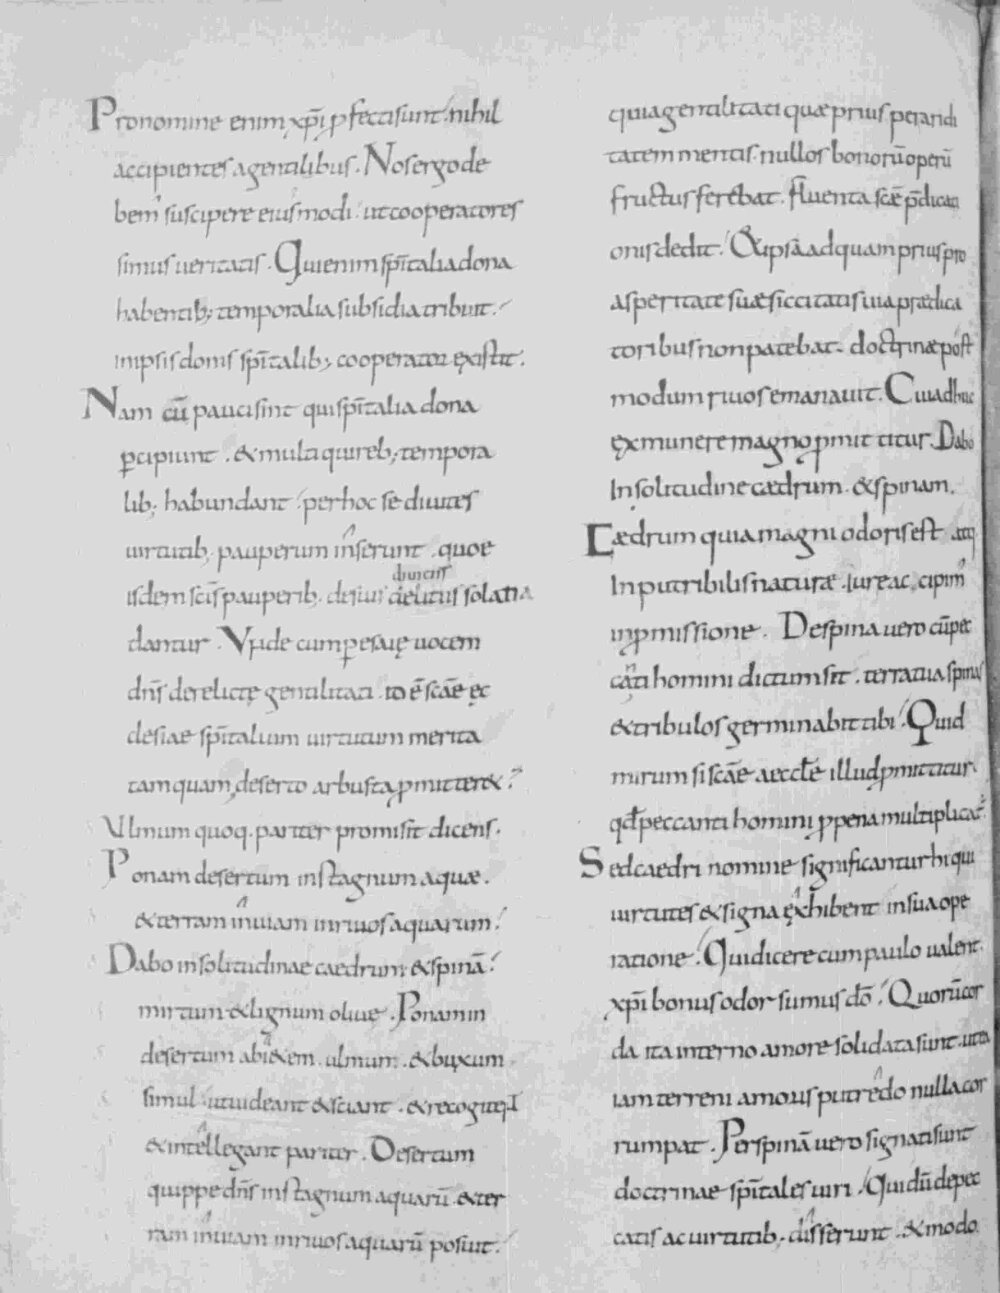 Pronomine enim xp̄i ꝑfectisunt nihil
accipientes agentilibus. Nos ergo de
bem' suscipere eiusmodi. ut cooperatores
simus ueritatis. Qui enim sp̄italia dona
habentib; temporalia subsidia tribuit.
inipsis donis sp̄italib; cooperator existit.
Nam cū pauci sint qui sp̄italia dona
ꝑcipiunt. & multi qui reb; tempora
lib; habundant. per hoc se diuites
uirtutib; pauperum inserunt. quo e
diuitiis
isdem sc̄is pauperib. de solatia
dantur. Vnde cum ꝑ esaię uocem
dn̄s derelictę gentilitati. id ē sc̄ae ęc
clesiae sp̄italium uirtutum merita
tamquam deserto arbusta ꝓmitteret?
Vlmum quoq. pariter promisit dicens.
Ponam desertum in stagnum aquae.
& terram inuiam in riuos aquarum.
Dabo in solitudinae caedrum. & spinā.
mirtum & lignum oliuę. Ponam in
desertum abietem. ulmum. & buxum
simul. ut uideant & sciant. & recogitent
& intellegant pariter. Desertum
quippe dn̄s in stagnum aquarū. & ter
ram inuiam in riuos aquarū posuit.
quia gentilitati quae prius per aridi
tatem mentis. nullos bonorū operū
fructus ferebat. fluenta sc̄ę p̄dicati
onis dedit. & ipsā ad quam prius pro
asperitate suae siccitatis uia praedica
toribus non patebat. doctrinae post
modum riuos emanauit. Cui adhuc
ex munere magno ꝓmittitur. Dabo
In solitudine caedrum. & spinam.
Caedrum quia magni odoris est atq
Inputribilis naturae. iure accipim'
in ꝓmissione. De spina uero cū pec
canti homini dictum sit. terra tua spinas
& tribulos germinabit tibi. Quid
mirum si sc̄ae aeccl̄e illud ꝓmittitur.
qd̄ peccanti homini ꝓ pena multiplicat'
Sed caedri nomine significantur hi qui
uirtutes & signa exhibent in sua ope
ratione. Qui dicere cum paulo ualent.
xp̄i bonus odor sumus dō. Quorū cor
da ita interno amore solidata sunt. ut
iam terreni amoris putredo nulla cor
rumpat. Per spinā uero signati sunt
doctrinae sp̄itales uiri. Qui dū de pec
catis ac uirtutib. disserunt. & modo